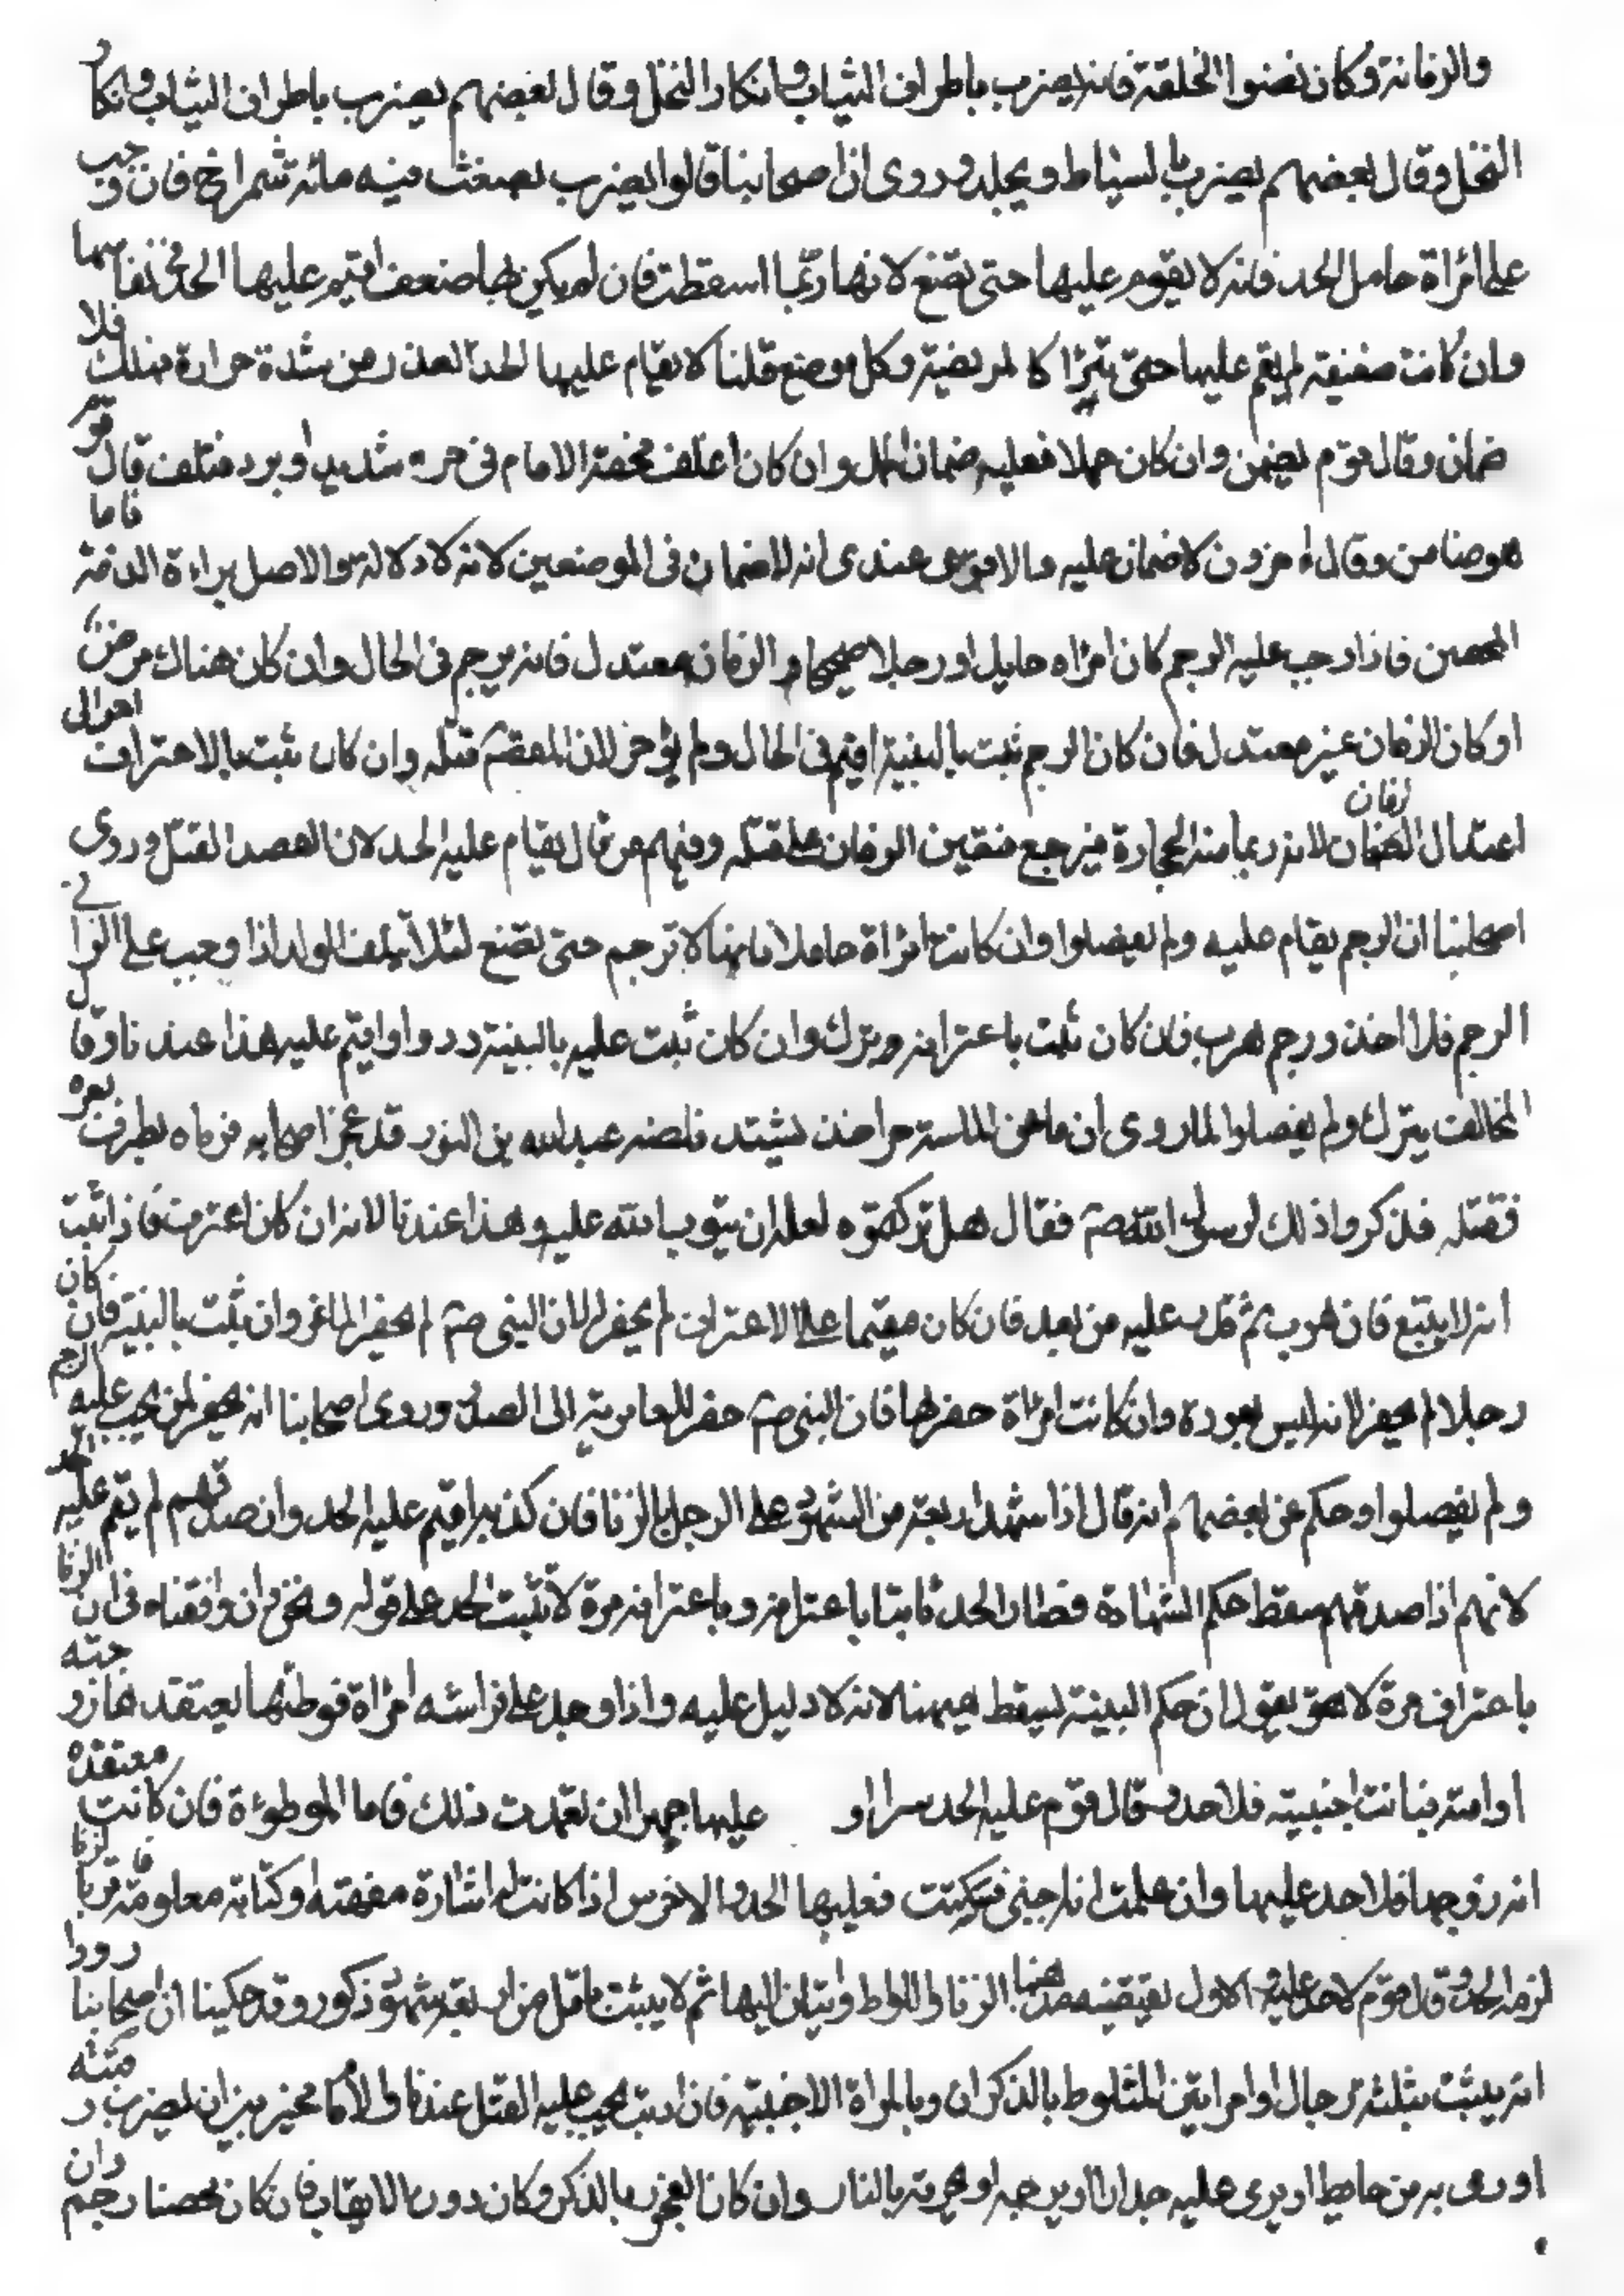 والزمانة وكان نضوا الخلقة فانه يضرب باطراف الثياب وانكار النخل وقال بعضهم يضرب باطراف الثياب وانكار
النخل وقال بعضهم يضرب بالسياط ويجلد وروى ان اصحابنا قالوا يضرب بضغث فيه مائة شمراخ فان وجب
على امرأة حامل الحد فانه لا يقوم عليها حتى تضع لانها ربما اسقطت فان لم يكن بها ضعف اقيم عليها الحد في نفاسها
وان كانت ضعيفة لم يقم عليها حتى تبرأ كالمريضة وكل موضع قلنا لا يقام عليها الحد لعذر من شدة حرارة فهلك فلا
ضمان وقال قوم يضمن وان كان حملا فعليه ضمان الحمل وان كان اغلف فختنه الامام في حر شديد او برد فتلف قال قوم
هو ضامن وقال اخرون لا ضمان عليه والاقوى عندى انه لا ضمان في الموضعين لانه لا دلالة والاصل براءة الذمة فاما
المحصن فاذا وجب عليه الرجم كان امرأه حايل او رجلا صحيحا والزمان معتدل فانه يرجم في الحال وان كان هناك مرض
او كان الزمان غير معتدل فان كان الرجم ثبت بالبينة اقيم في الحال ولم يؤخر لان المقصد قتله وان كان ثبت بالاعتراف اخر الى
اعتدال الزمان لانه ربما مسه الحجارة فيرجع فيعين الزمان على قتله وفيهم من قال يقام عليه الحد لان القصد القتل وروى
اصحابنا ان الرجم يقام عليه ولم يفصلوا وان كانت امرأة حاملا فانها لا ترجم حتى تضع لئلا يتلف الولد اذا وجب على الزانى
الرجم فلما اخذ ورجم هرب فان كان ثبت باعترافه ترك وان كان ثبت عليه بالبينة رد واقيم عليه هذا عندنا وقال
المخالف يترك ولم يفصلوا لما روى ان ماعز لما مسته حر اخذ يشتد فلقيه عبد الله بن قد عجز اصحابه فرماه بطرف بعيره
فقتله فذكروا ذلك لرسول الله صم فقال هل تركتموه لعله ان يتوب الله عليه وهذا عندنا لانه ان كان اعترف فاذا ثبت
انه لا يتبع فان هرب ثم قدر عليه من بعد فان كان مقيما على الاعتراف لم يحفر له لان النبى صم لم يحفر لماعز وان ثبت بالبينة فان كان
رجلا لم يحفر لانه ليس بعورة وان كانت امرأة حفر لها فان النبى صم حفر للعامرية الى الصدر وروى اصحابنا انه يحفر لمن يجب عليه الرجم
ولم يفصلوا وحكم عن بعضهم انه قال اذا شهد اربعة من الشهود على الرجل بالزنا فان كذبهم اقيم عليه الحد وان صدقهم لم يقم عليه الحد
لانهم اذا صدقهم سقط حكم الشهادة فصار الحد ثابتا باعترافه وباعترافه مرة لا يثبت الحد على قوله ونحن ان وافقناه في ان الزنا
باعتراف مرة لا يقول ان حكم البينة يسقط ههنا لانه لا دليل عليه واذا وجد على فراشه امرأة فوطئها يعتقدها زوجته
او امته فبانت اجنبية فلا حد وقال قوم عليه الحد سرا او عليها جهرا ان تعمدت ذلك فاما الموطوءة فان كانت معتقدة
انه زوجها فلا حد عليها وان علمت انه اجنبى فسكتت فعليها الحد والاخرس اذا كانت له اشارة مفهمة او كتابة معلومة فاقر بالزنا
لزمه الحد وقال قوم لا حد عليه والاول يقتضيه مذهبنا الزنا واللواط واتيان البهائم لا يثبت باقل من اربعة شهود ذكور وقد حكينا ان اصحابنا رووا
انه يثبت بثلثة رجال او امرأتين المتلوط بالذكران وبالمرأة الاجنبية فان يجب عليه القتل عندنا والامام مخير بين ان يضرب رقبته
او رمى به من حايط او يرمى عليه جدارا او يرجمه او يحرقه بالنار وان كان الفجور بالذكر وكان دون الايقاب فان كان محصنا رجم وان